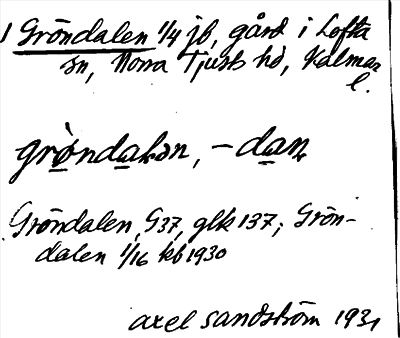 1 Gröndalen 1/4 jb, gård i Lofta
sn, Norra Tjusts hd, Kalmar
l.
grö̀ndalən, -dan
Gröndalen, G37, glk 137; Grön-
dalen 1/16 kb 1930
Axel Sandström 1931